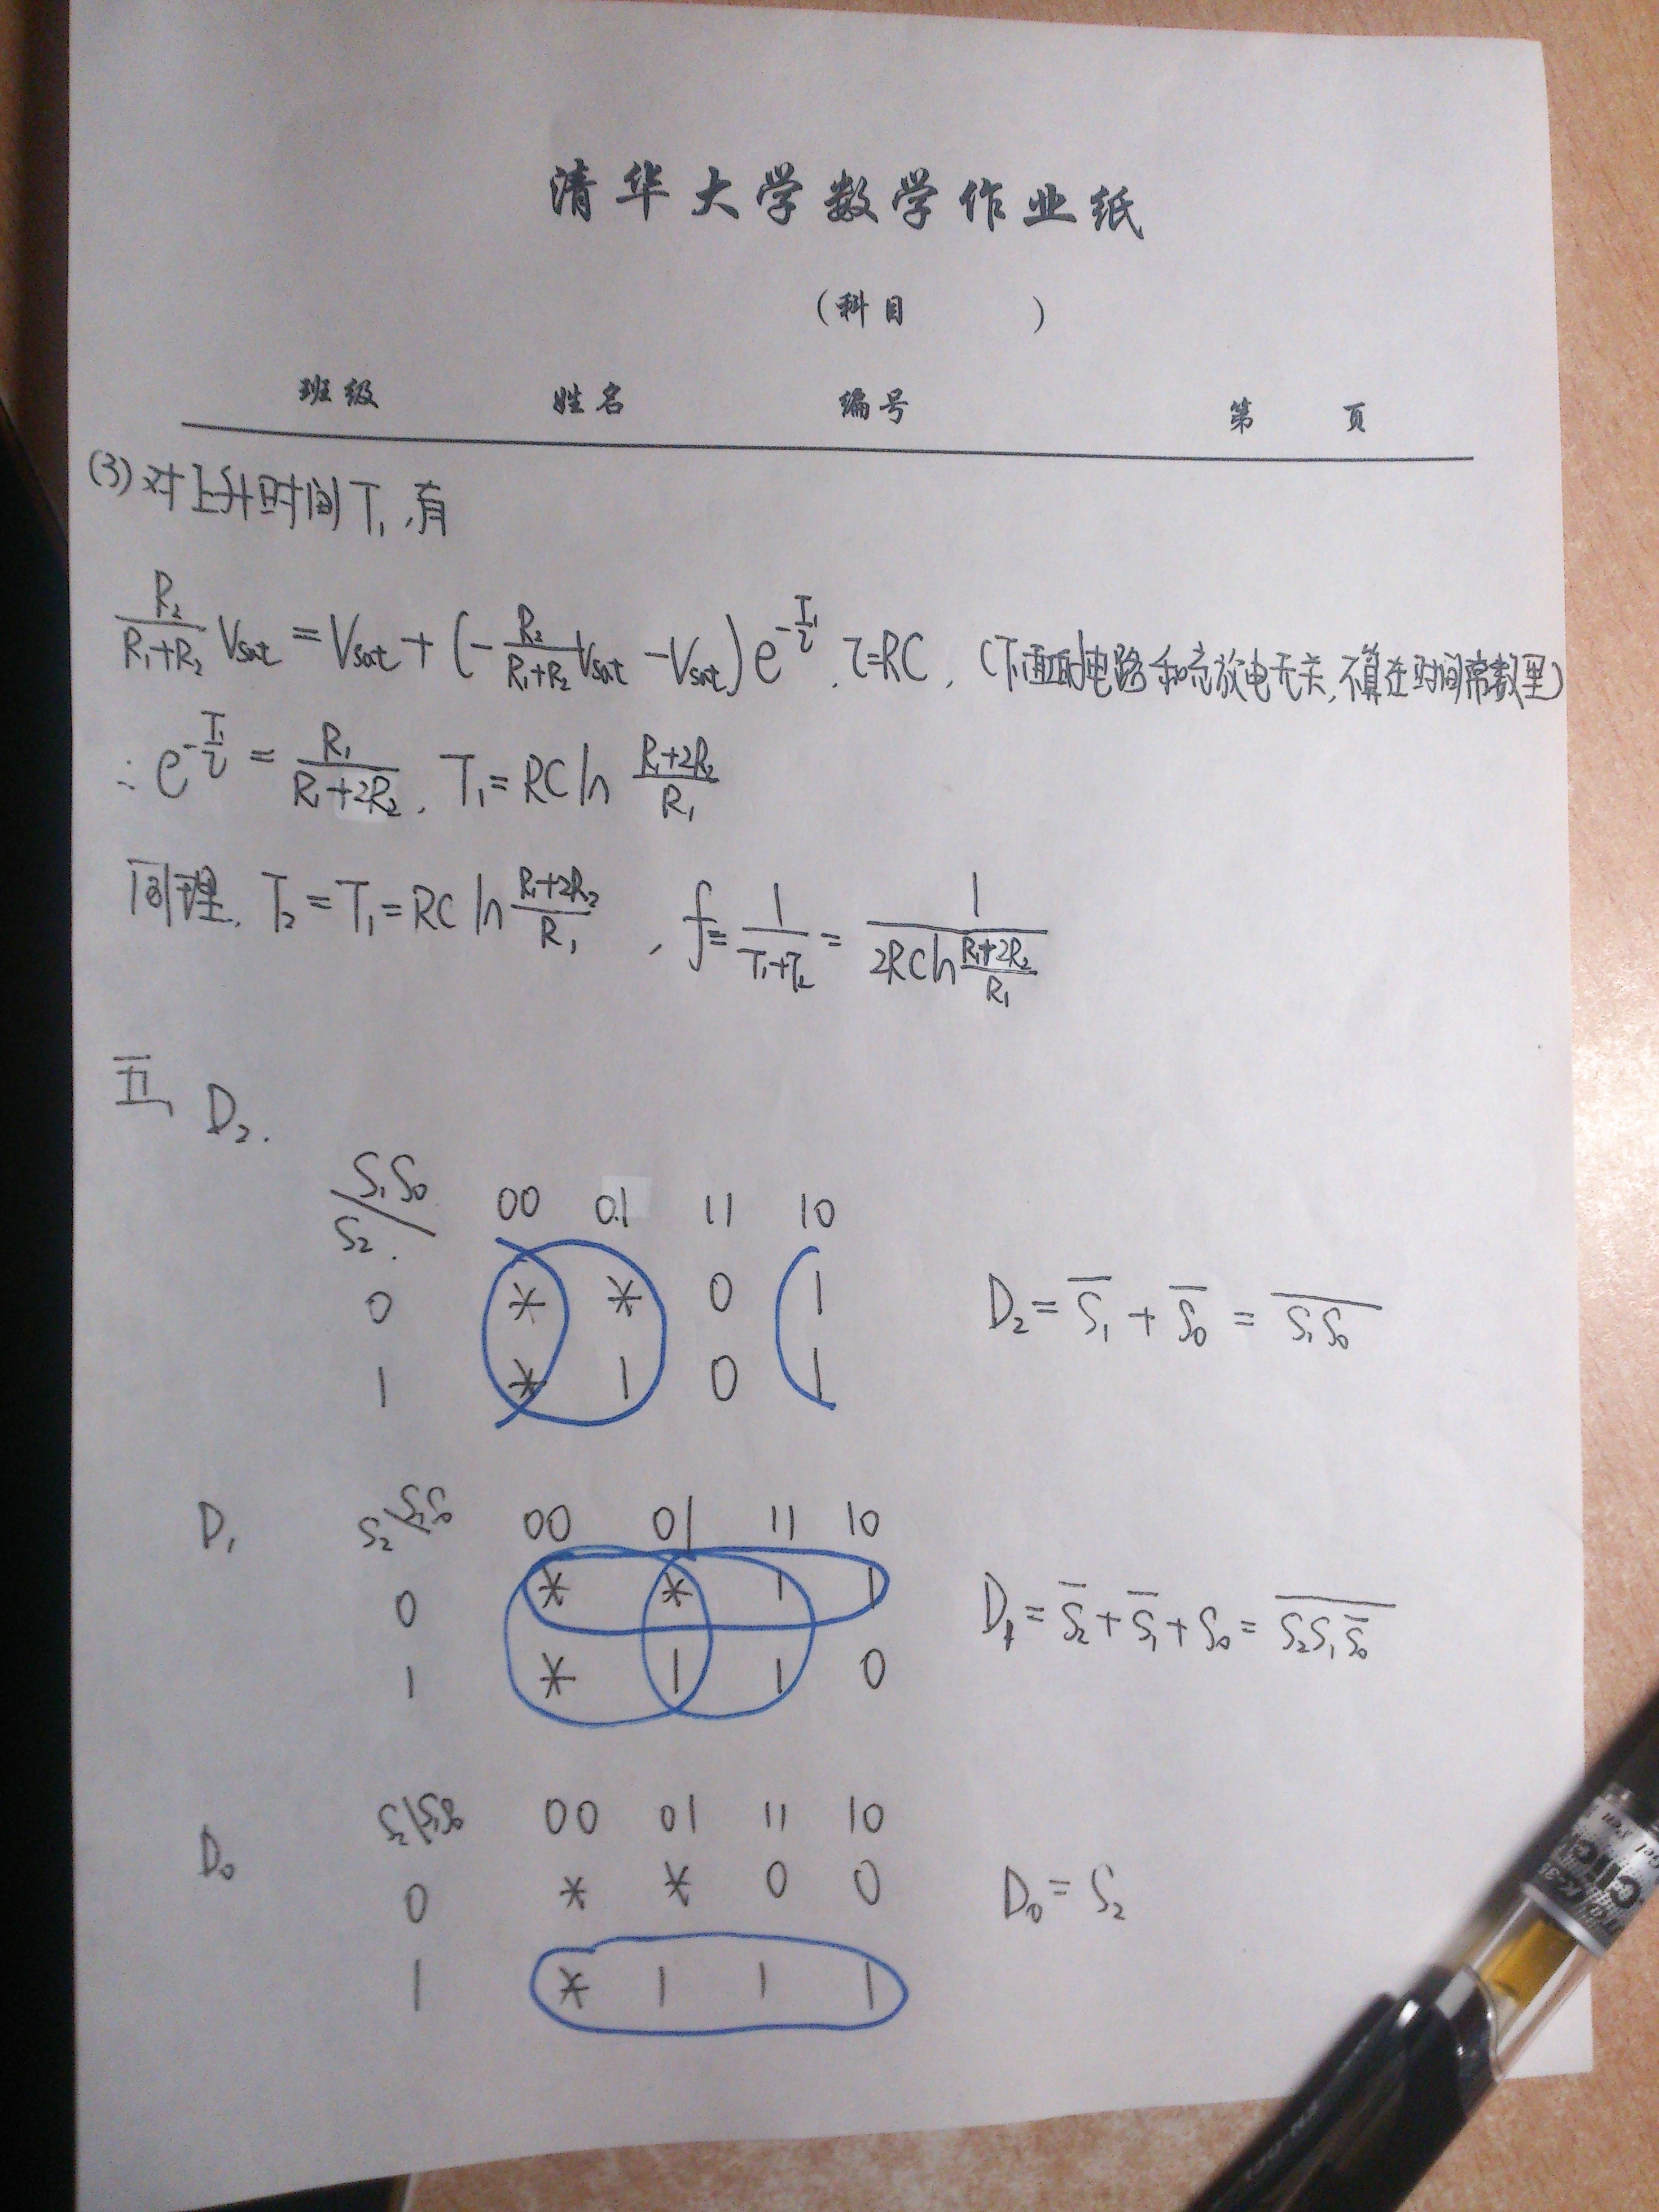 清华大学数学作业纸
(科目 )
班级 姓名 编号 第 页
(3) 对上升时间 T₁,有
R₂/(R₁+R₂) Vsat = Vsat + (-R₂/(R₁+R₂) Vsat - Vsat) e^(-T₁/τ), τ=RC, (下面的电路和充放电无关,不算在时间常数里)
∴ e^(-T₁/τ) = R₁/(R₁+2R₂), T₁ = RC ln (R₁+2R₂)/R₁
同理, T₂ = T₁ = RC ln (R₁+2R₂)/R₁, f = 1/(T₁+T₂) = 1/(2RC ln (R₁+2R₂)/R₁)
五、 D₂.
S₂\S₁S₀ 00 01 11 10
0 * * 0 1
1 * 1 0 1
D₂ = S̅₁ + S̅₀ = \overline{S₁S₀}
D₁ S₂\S₁S₀ 00 01 11 10
0 * * 1 1
1 * 1 1 0
D₁ = S̅₂ + S̅₁ + S₀ = \overline{S₂S₁S̅₀}
D₀ S₂\S₁S₀ 00 01 11 10
0 * * 0 0
1 * 1 1 1
D₀ = S₂